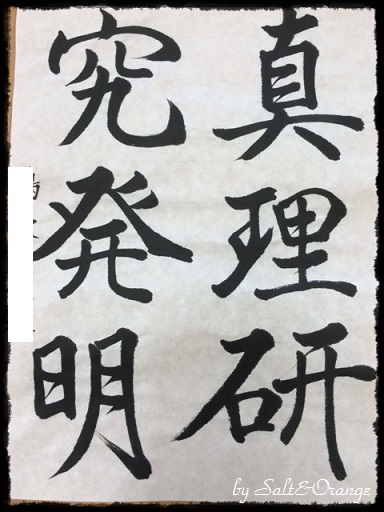 真理研
究発明
by Salt&Orange